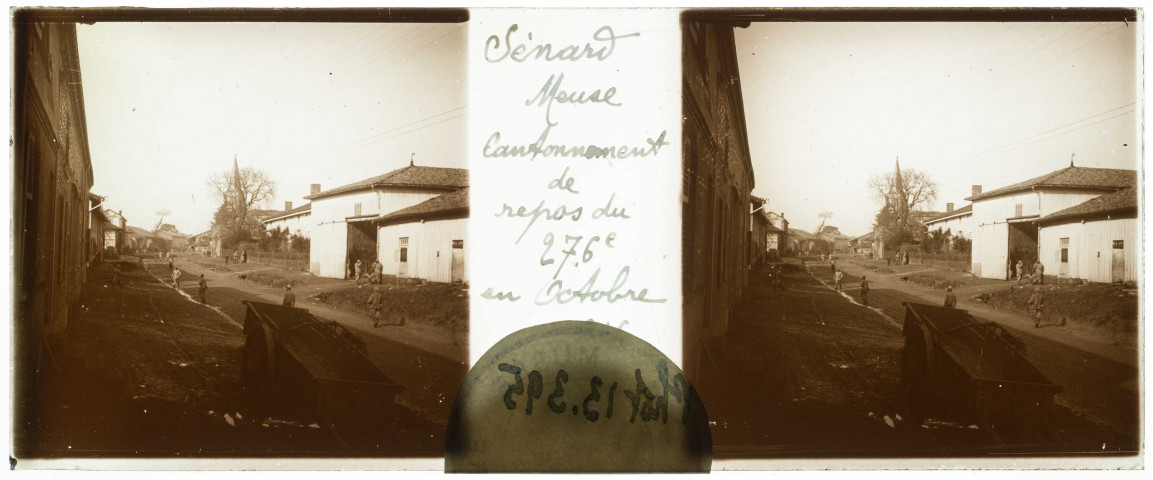 Sénard
Meuse
Cantonnement
de
repos du
276e
en Octobre
Phot 13.395